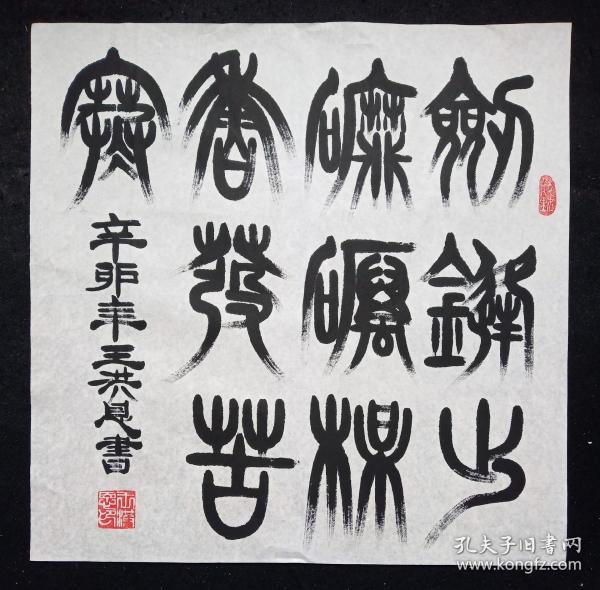 劍鋒出
礪礪梅
香發苦
寒
辛卯年王洪恩書
孔夫子旧書网
www.kongfz.com